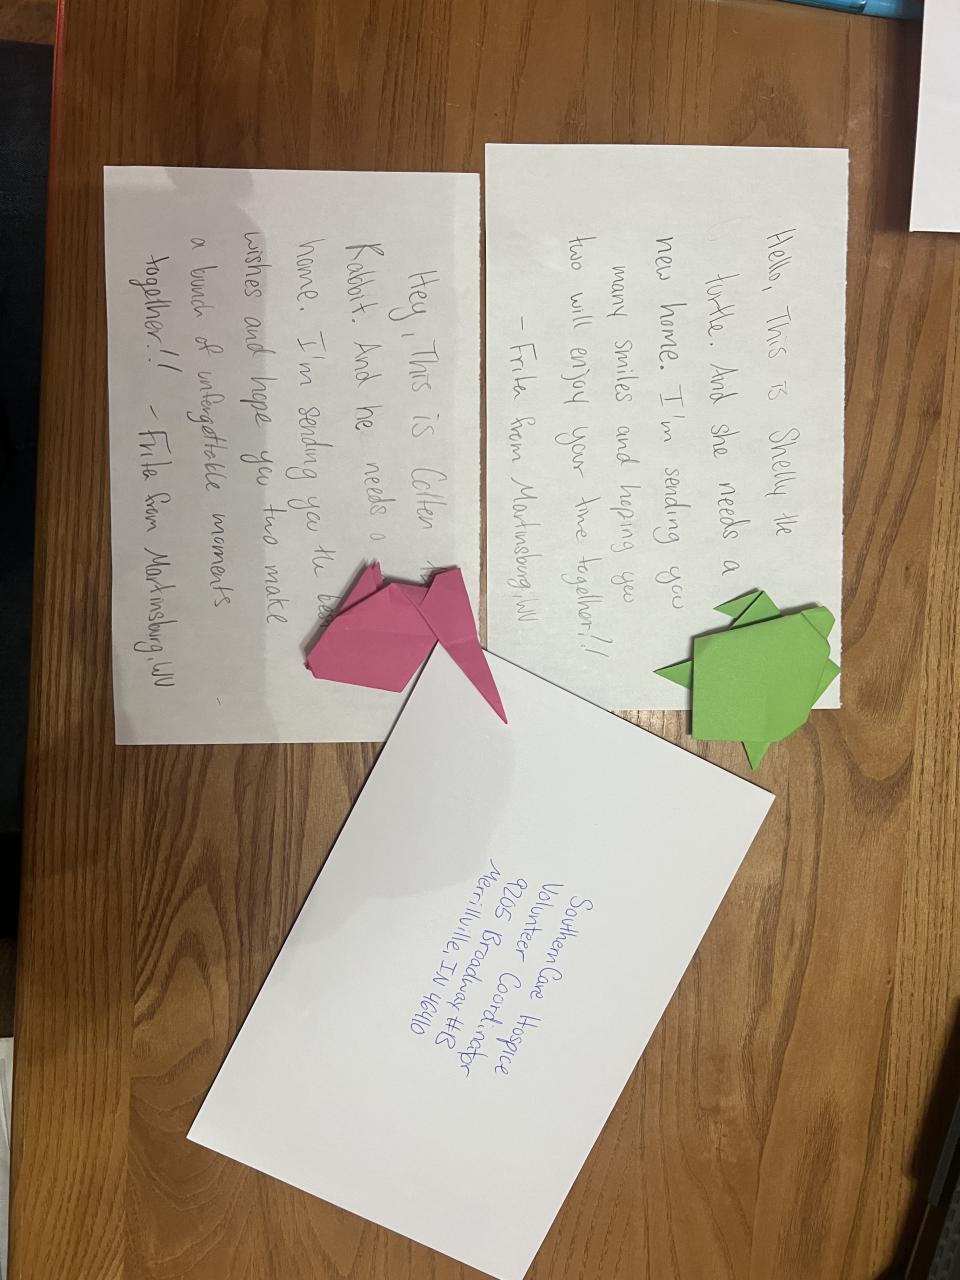 Hello, This is Shelly the
turtle. And she needs a
new home. I'm sending you
many smiles and hoping you
two will enjoy your time together!!
- Frita from Martinsburg, WV
Hey, This is Colten
Rabbit. And he needs a
home. I'm sending you the
wishes and hope you two make
a bunch of unforgettable moments
together!! - Frita from Martinsburg, WV
SouthernCare Hospice
Volunteer Coordinator
9205 Broadway #B
Merrillville, IN 46410